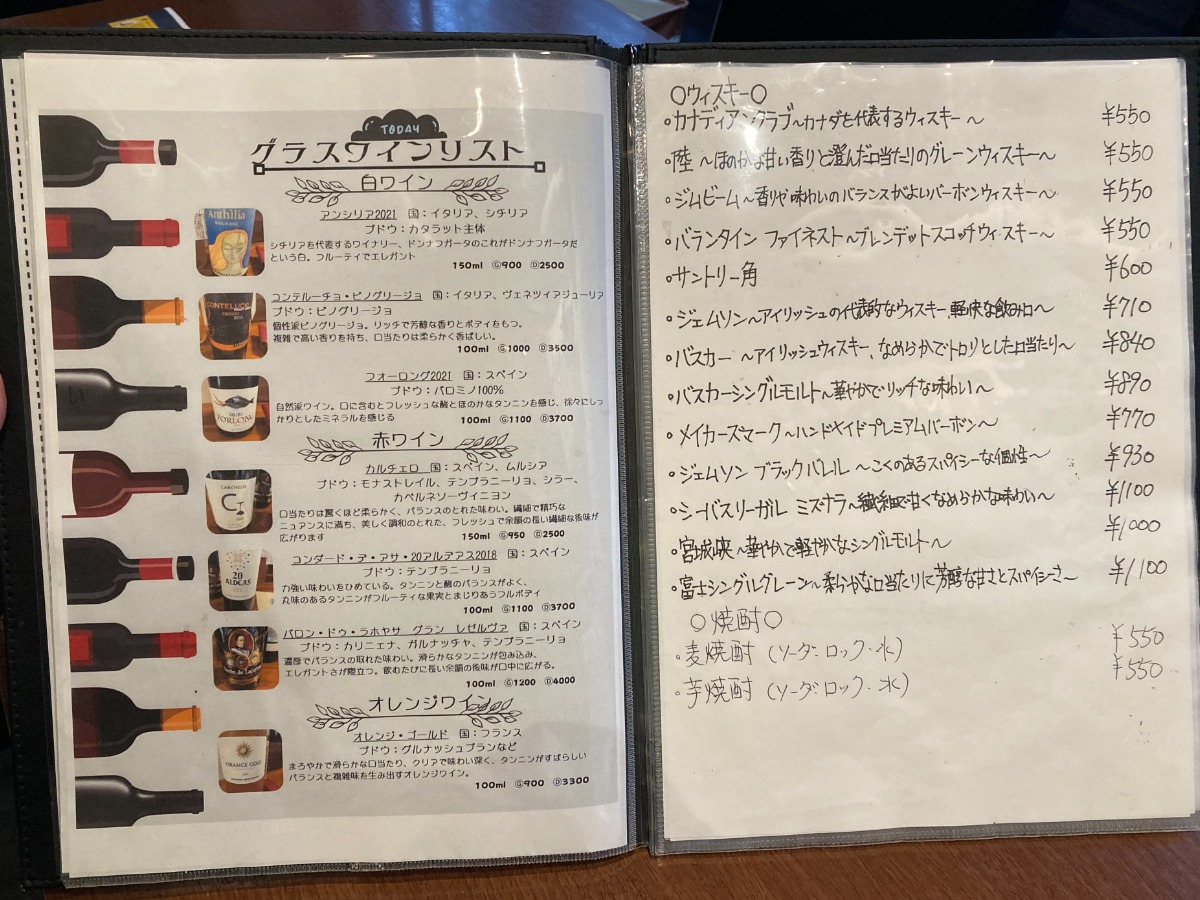 TODAY
グラスワインリスト
白ワイン
Anthìlia
アンシリア2021 国：イタリア、シチリア
ブドウ：カタラット主体
シチリアを代表するワイナリー、ドンナフガータのこれがドンナフガータだ
という白。フルーティでエレガント
150ml Ⓖ900 Ⓓ2500
コンテルーチョ・ピノグリージョ 国：イタリア、ヴェネツイアジューリア
ブドウ：ピノグリージョ
個性派ピノグリージョ。リッチで芳醇な香りとボディをもつ。
複雑で高い香りを持ち、口当たりは柔らかく香ばしい。
100ml Ⓖ1000 Ⓓ3500
フォーロング2021 国：スペイン
ブドウ：パロミノ100%
自然派ワイン。口に含むとフレッシュな酸とほのかなタンニンを感じ、徐々にしっ
かりとしたミネラルを感じる 100ml Ⓖ1100 Ⓓ3700
FORLONG
赤ワイン
カルチェロ 国：スペイン、ムルシア
ブドウ：モナストレイル、テンプラニーリョ、シラー、
カベルネソーヴィニヨン
CARCHELO
口当たりは驚くほど柔らかく、バランスのとれた味わい。繊細で精巧な
ニュアンスに満ち、美しく調和のとれた、フレッシュで余韻の長い繊細な後味が
広がります 150ml Ⓖ950 Ⓓ2500
コンダード・デ・アサ・20アルデアス2018 国：スペイン
ブドウ：テンプラニーリョ
20
ALDEAS
力強い味わいをひめている。タンニンと酸のバランスがよく、
丸味のあるタンニンがフルーティな果実とまじりあうフルボディ
100ml Ⓖ1100 Ⓓ3700
バロン・ドゥ・ラホヤサ グラン レゼルヴァ 国：スペイン
ブドウ：カリニェナ、ガルナッチャ、テンプラニーリョ
濃厚でバランスの取れた味わい。滑らかなタンニンが包み込み、
エレガントさが際立つ。飲むたびに長い余韻の後味が口中に広がる。
100ml Ⓖ1200 Ⓓ4000
オレンジワイン
オレンジ・ゴールド 国：フランス
ブドウ：グルナッシュブランなど
ORANGE GOLD
まろやかで滑らかな口当たり、クリアで味わい深く、タンニンがすばらしい
バランスと複雑味を生み出すオレンジワイン。
100ml Ⓖ900 Ⓓ3300
○ウィスキー○
・カナディアンクラブ～カナダを代表するウィスキー～ ¥550
・陸～ほのかな甘い香りと澄んだ口当たりのグレーンウィスキー～ ¥550
・ジムビーム～香りや味わいのバランスがよいバーボンウィスキー～ ¥550
・バランタイン ファイネスト～ブレンデットスコッチウィスキー～ ¥550
・サントリー角 ¥600
・ジェムソン～アイリッシュの代表的なウィスキー、軽快な飲み口～ ¥710
・バスカー～アイリッシュウィスキー、なめらかでトロリとした口当たり～ ¥840
・バスカーシングルモルト～華やかでリッチな味わい～ ¥890
・メイカーズマーク～ハンドメイドプレミアムバーボン～ ¥770
・ジェムソン ブラックバレル～こくのあるスパイシーな個性～ ¥930
・シーバスリーガル ミズナラ～繊細で甘くなめらかな味わい～ ¥1100
・宮城峡～華やかで軽やかなシングルモルト～ ¥1000
・富士シングルグレーン～柔らかな口当たりに芳醇な甘さとスパイシーさ～ ¥1100
○焼酎○
・麦焼酎（ソーダ・ロック・水） ¥550
・芋焼酎（ソーダ・ロック・水） ¥550